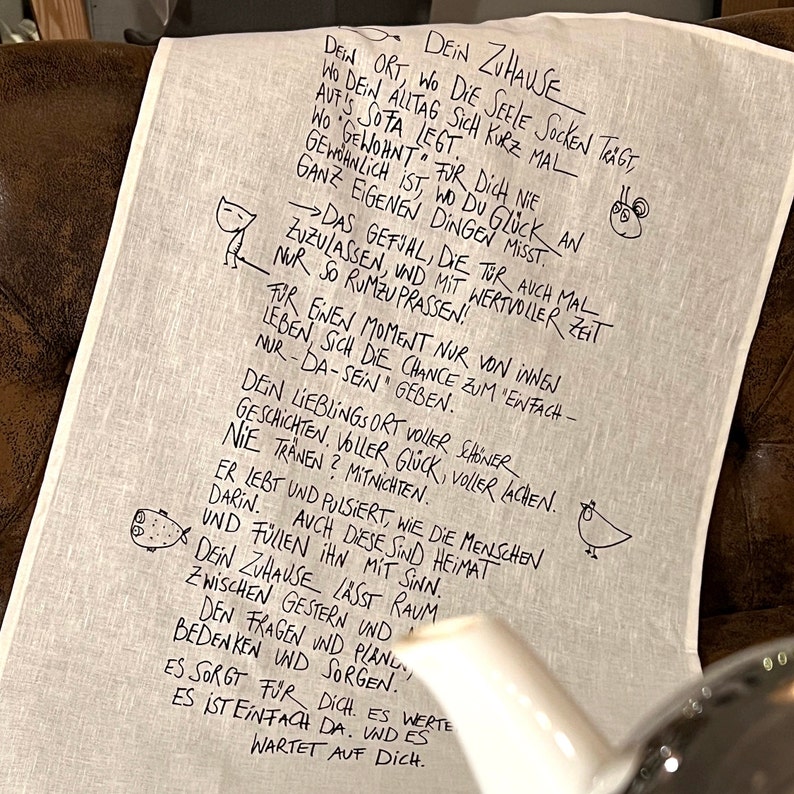 DEIN ZUHAUSE
DEIN ORT, WO DIE SEELE SOCKEN TRÄGT,
WO DEIN ALLTAG SICH KURZ MAL
AUF'S SOFA LEGT.
WO "GEWOHNT" FÜR DICH NIE
GEWÖHNLICH IST, WO DU GLÜCK AN
GANZ EIGENEN DINGEN MISST.
→DAS GEFÜHL, DIE TÜR AUCH MAL
ZUZULASSEN, UND MIT WERTVOLLER ZEIT
NUR SO RUMZUPRASSEN!
FÜR EINEN MOMENT NUR VON INNEN
LEBEN, SICH DIE CHANCE ZUM "EINFACH-
NUR-DA-SEIN" GEBEN.
DEIN LIEBLINGSORT VOLLER SCHÖNER
GESCHICHTEN. VOLLER GLÜCK, VOLLER LACHEN.
NIE TRÄNEN? MITNICHTEN.
ER LEBT UND PULSIERT, WIE DIE MENSCHEN
DARIN. AUCH DIESE SIND HEIMAT
UND FÜLLEN IHN MIT SINN.
DEIN ZUHAUSE LÄSST RAUM
ZWISCHEN GESTERN UND
DEN FRAGEN UND PLÄNEN,
BEDENKEN UND SORGEN.
ES SORGT FÜR DICH. ES WERTE
ES IST EINFACH DA. UND ES
WARTET AUF DICH.